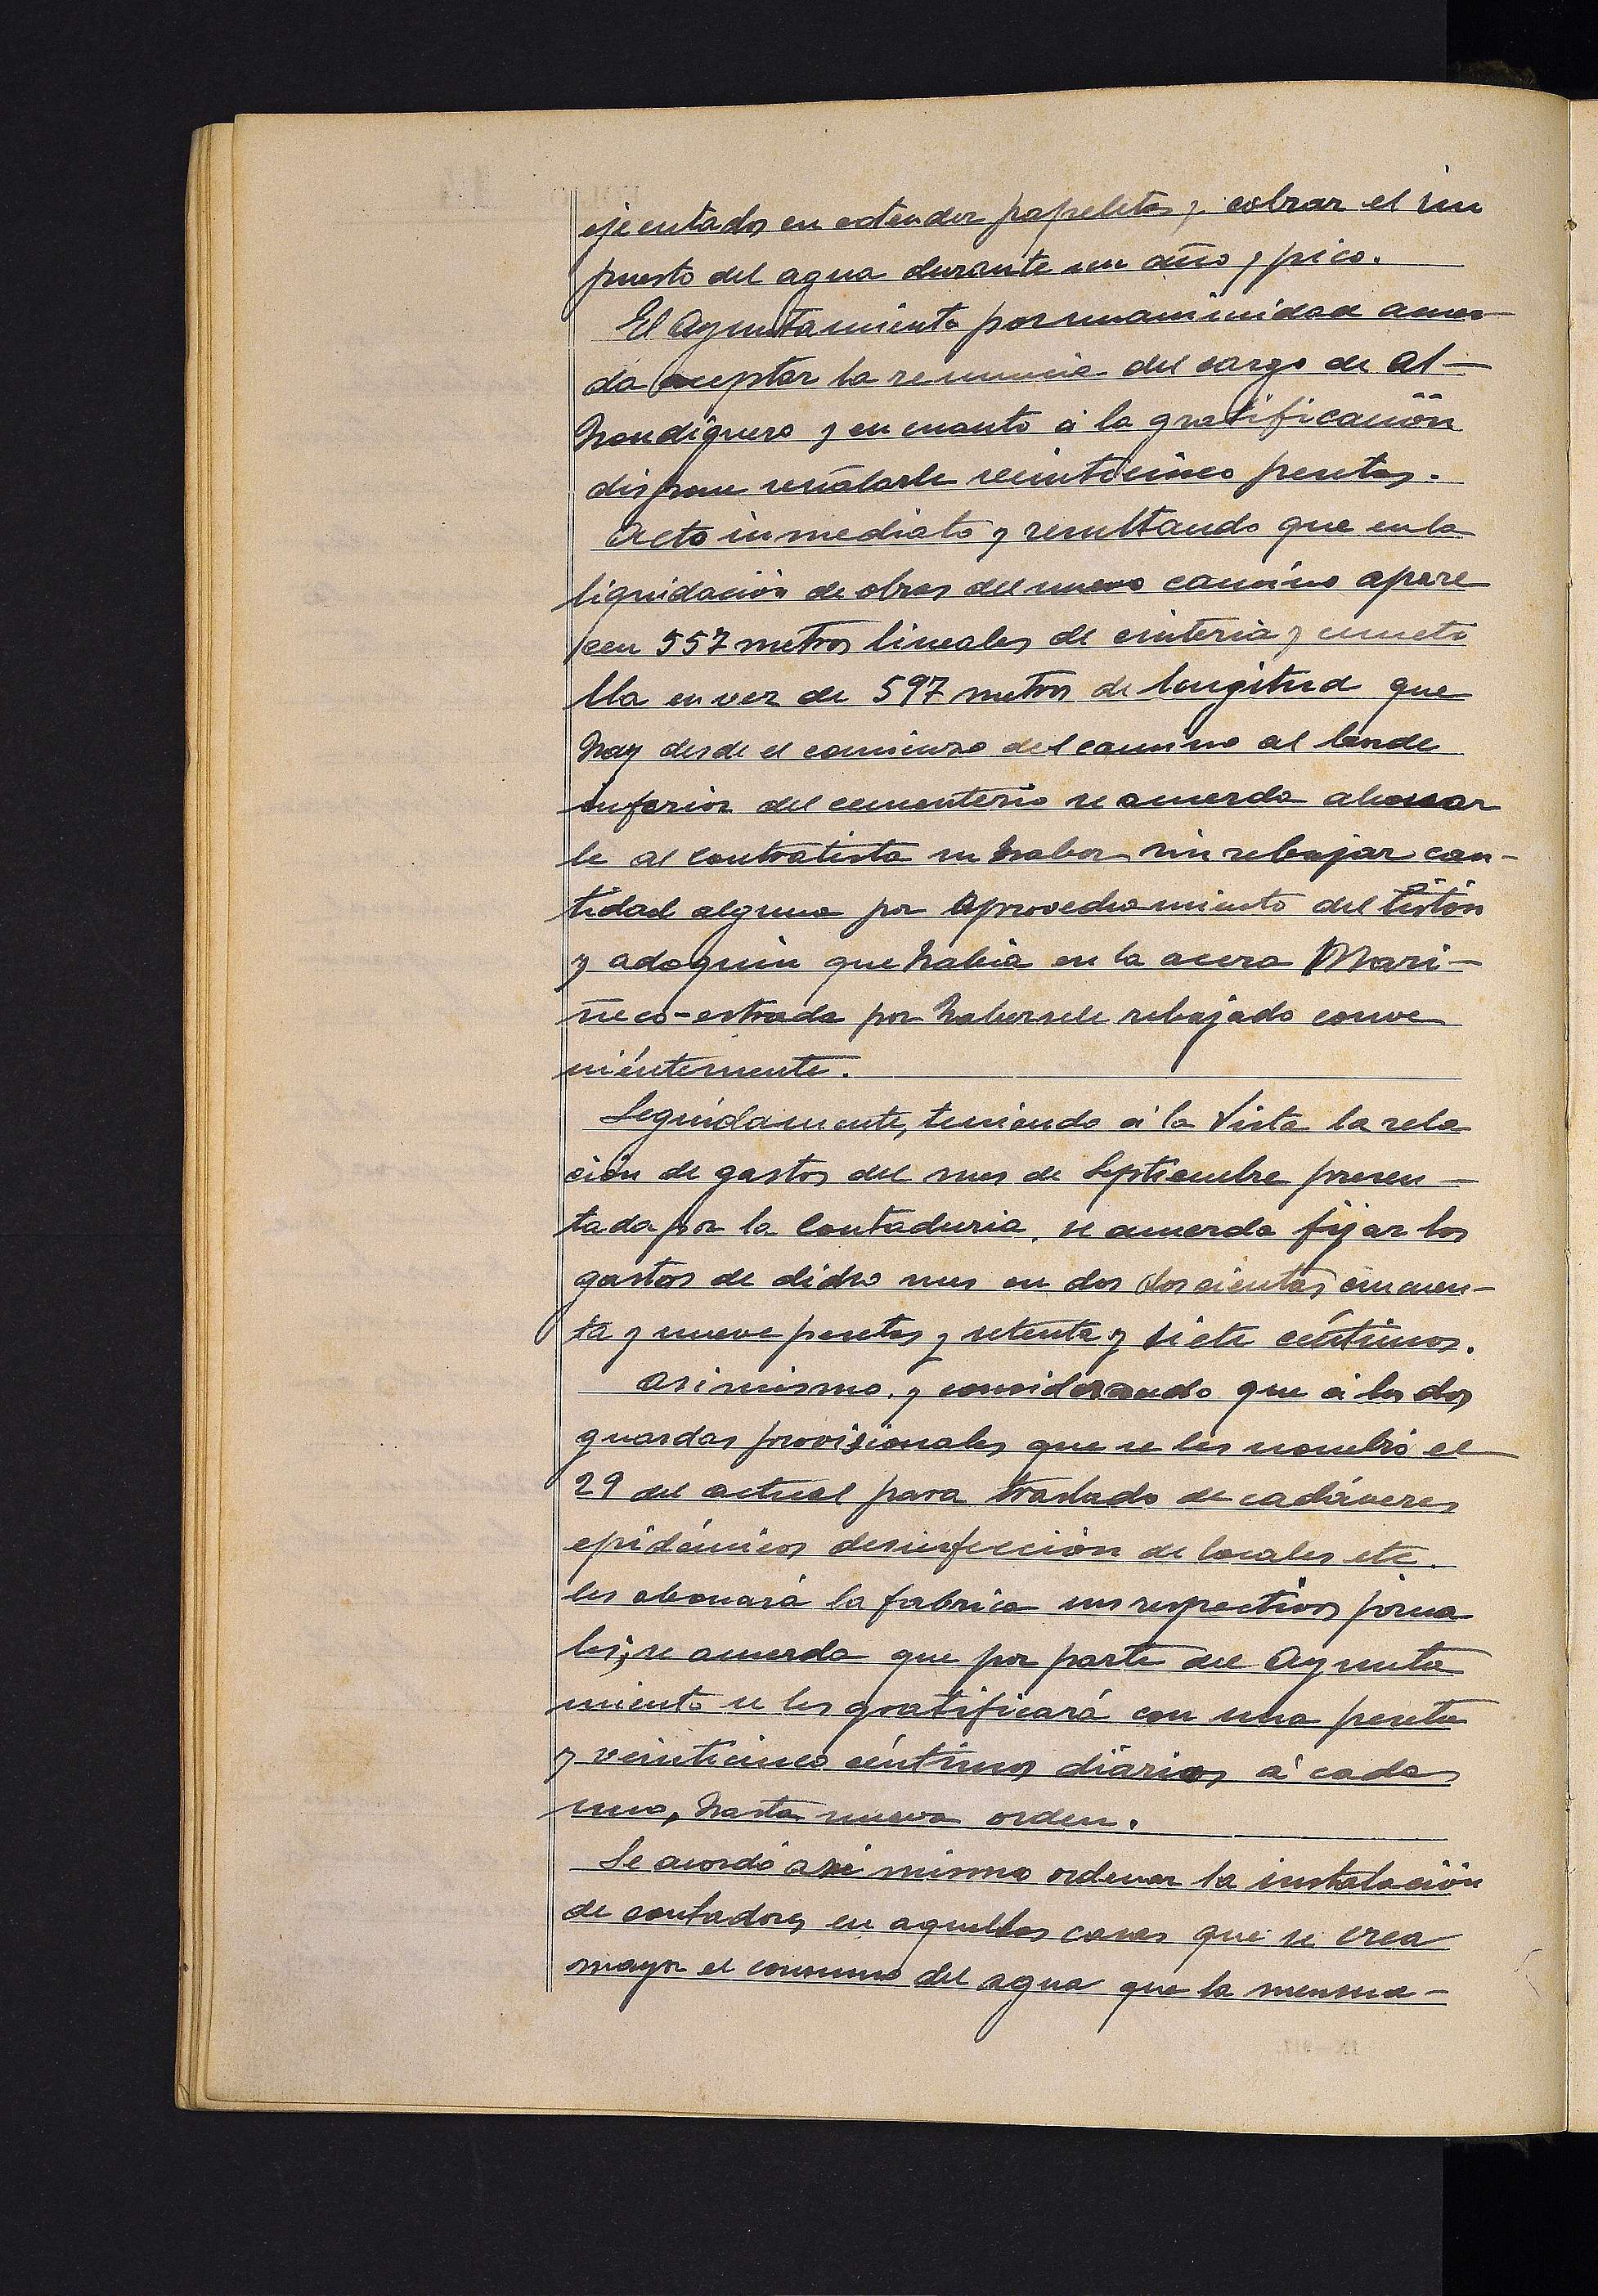 ejecutados en extender papeletas y cobrar el im
puesto del agua durante un año y pico.
El Ayuntamiento por unanimidad acuer-
da aceptar la renuncia del cargo de Al-
hondiguero y en cuanto á la gratificación
dispone señalarle veinticinco pesetas.
Acto inmediato y resultando que en la
liquidación de obras del nuevo camino apare
cen 557 metros lineales de cinteria y cuneti
lla en vez de 597 metros de longitud que
hay desde el comienzo del camino al linde
inferior del cementerio se acuerda abonar
le al contratista su haber sin rebajar can-
tidad alguna por aprovechamiento del
y adoquin que habia en la acera Mari-
ñeco-estrada por habersele rebajado conve
niéntemente.
Seguidamente, teniendo á la vista la rela
ción de gastos del mes de Septiembre presen-
tada por la Contaduria, se acuerda fijar los
gastos de dicho mes en dos doscientas cincuen-
ta y nueve pesetas y setenta y siete céntimos.
Asimismo, y considerando que á los dos
guardas provisionales que se les nombró el
29 del actual para traslado de cadáveres
epidémicos desinfección de locales etc.
les abonará la fabrica sus respectivos jorna
les, se acuerda que por parte del Ayunta
miento se les gratificará con una peseta
y veinticinco céntimos diarios á cada
uno, hasta nueva orden.
Se acordó asi mismo ordenar la instalación
de contadores en aquellas casas que se crea
mayor el consumo del agua que la mensua-